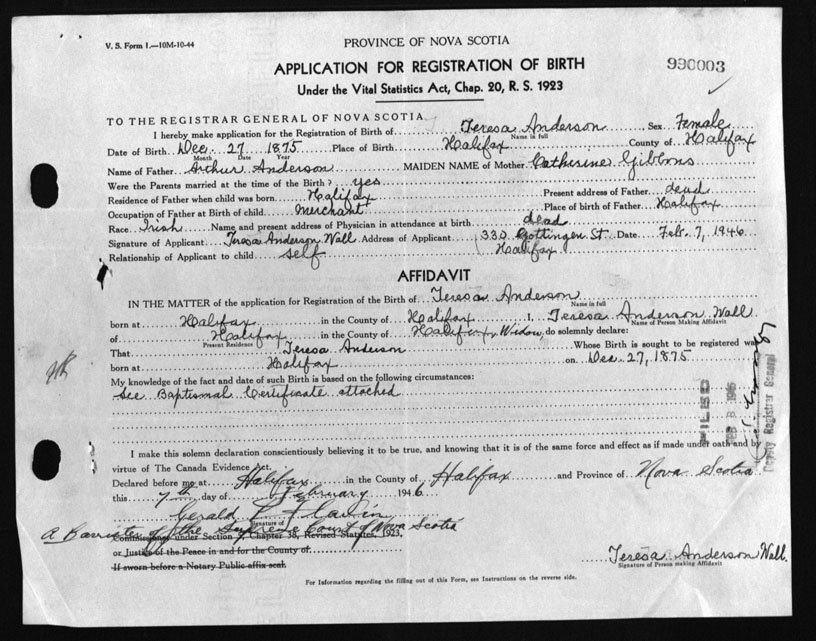 V. S. Form 1.—10M-10-44
PROVINCE OF NOVA SCOTIA
APPLICATION FOR REGISTRATION OF BIRTH
990003
Under the Vital Statistics Act, Chap. 20, R. S. 1923
TO THE REGISTRAR GENERAL OF NOVA SCOTIA
I hereby make application for the Registration of Birth of Teresa Anderson, Sex Female
Name in full
Date of Birth Dec. 27 1875 Place of Birth Halifax County of Halifax
Month Date Year
Name of Father Arthur Anderson MAIDEN NAME of Mother Catherine Gibbons
Were the Parents married at the time of the Birth? yes
Residence of Father when child was born Halifax Present address of Father dead
Occupation of Father at Birth of child merchant Place of birth of Father Halifax
Race Irish Name and present address of Physician in attendance at birth dead
Signature of Applicant Teresa Anderson Wall Address of Applicant 330 Gottingen St. Date Feb. 7, 1946
Relationship of Applicant to child self Halifax
AFFIDAVIT
IN THE MATTER of the application for Registration of the Birth of Teresa Anderson
Name in full
born at Halifax in the County of Halifax I, Teresa Anderson Wall
Name of Person Making Affidavit
of Halifax in the County of Halifax, Widow, do solemnly declare:
Present Residence
That Teresa Anderson Whose Birth is sought to be registered was
born at Halifax on Dec. 27, 1875
My knowledge of the fact and date of such Birth is based on the following circumstances:
See Baptismal Certificate attached
FILED
FEB 8 1946
Deputy Registrar General
I make this solemn declaration conscientiously believing it to be true, and knowing that it is of the same force and effect as if made under oath and by
virtue of The Canada Evidence Act.
Declared before me at Halifax in the County of Halifax and Province of Nova Scotia
this 7th day of February 1946
Gerald P. Flavin
Signature of
A Barrister of the Supreme Court of Nova Scotia
Commissioner under Section 7 Chapter 38, Revised Statutes, 1923,
or Justice of the Peace in and for the County of
If sworn before a Notary Public affix seal
Teresa Anderson Wall.
Signature of Person making Affidavit
For Information regarding the filling out of this Form, see Instructions on the reverse side.